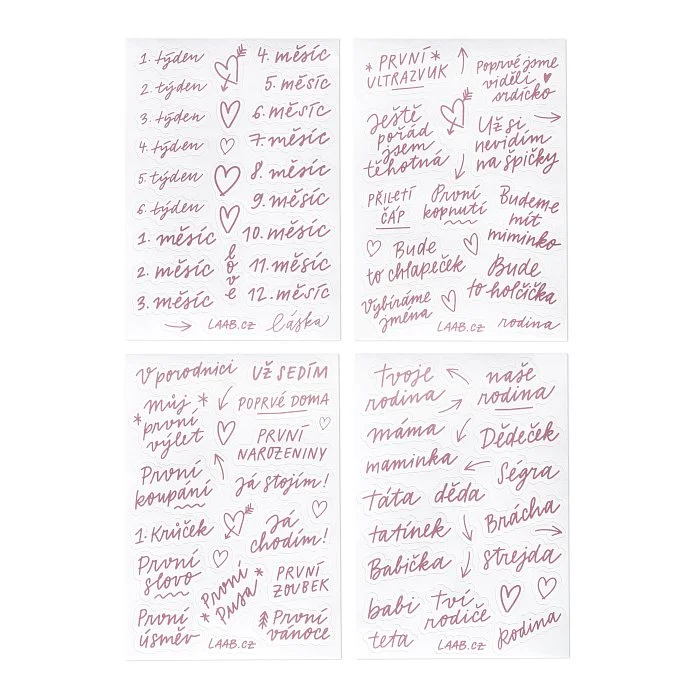 1. týden
2. týden
3. týden
4. týden
5. týden
6. týden
1. měsíc
2. měsíc
3. měsíc
4. měsíc
5. měsíc
6. měsíc
7. měsíc
8. měsíc
9. měsíc
10. měsíc
11. měsíc
12. měsíc
love
LAAB.CZ
láska
* PRVNÍ *
ULTRAZVUK
Poprvé jsme
viděli
srdíčko
Ještě
pořád
jsem
těhotná
Už si
nevidím
na špičky
PŘILETÍ
ČÁP
První
kopnutí
Budeme
mít
miminko
Bude
to chlapeček
Bude
to holčička
Vybíráme
jména
LAAB.CZ
rodina
V porodnici
UŽ SEDÍM
* můj *
první
výlet
POPRVÉ DOMA
PRVNÍ
NAROZENINY
První
koupání
Já stojím!
1. Krůček
Já
chodím!
První
slovo
První *
* Pusa
PRVNÍ
ZOUBEK
První
úsměv
První
vánoce
LAAB.CZ
tvoje
rodina
naše
rodina
máma
Dědeček
maminka
Ségra
táta
děda
tatínek
Brácha
Babička
strejda
babi
tví
rodiče
teta
LAAB.CZ
Rodina